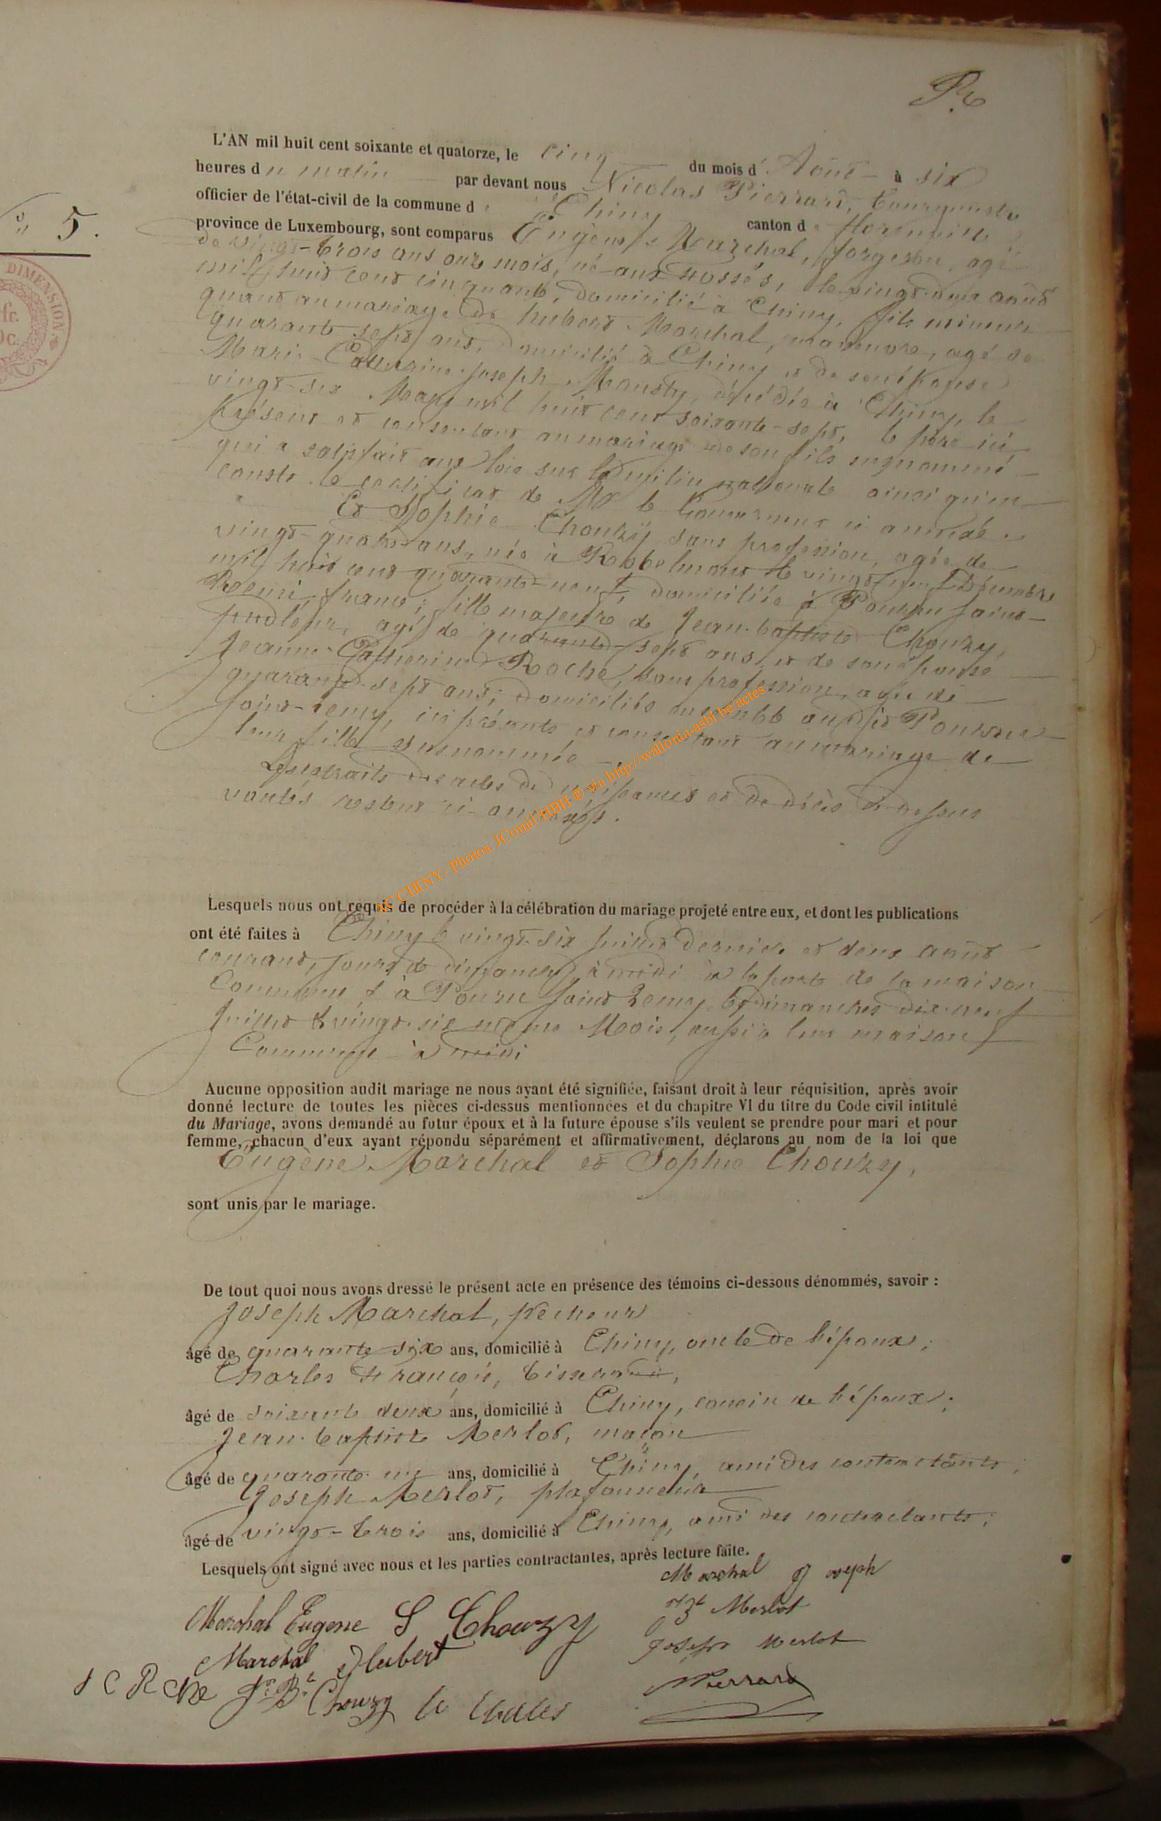 L'AN mil huit cent soixante et quatorze, le cinq du mois d'Août à six
heures du matin par devant nous Nicolas Pierrard, bourgmestre
officier de l'état-civil de la commune de Chiny canton de florenville
N° 5.
province de Luxembourg, sont comparus Eugène Marchal, forgeron, agé
DIMENSION
de vingt-trois ans onze mois, né aux fossés, le vingt deux août
mil huit cent cinquante, domicilié à Chiny, fils mineur
quant au mariage de hubert Marchal, manœuvre, agé de
quarante sept ans, domicilié à Chiny et de son épouse
Marie-Catherine-Joseph Mousty, décédée à Chiny, le
vingt-six Mars mil huit cent soixante-sept, le père ici
présent et consentant au mariage de son fils susnommé
qui a satisfait aux lois sur la milice nationale ainsi qu'en
conste le certificat de Mr le Gouverneur ci annexé.
Et Sophie Chouzy sans profession, agée de
vingt-quatre ans, née à Robelmont le vingt neuf Décembre
mil huit cent quarante-neuf, domiciliée à Pouru Saint-
Remi, france, fille majeure de Jean-baptiste Chouzy,
agé de quarante-sept ans, et de son épouse
Jeanne-Catherine Roche, sans profession, agée de
quarante-sept ans, domiciliés ensemble audit Pouru
Saint-Remy, ici présents et consentant au mariage de
leur fille susnommée
Les extraits des actes de naissances et de décès ci-dessus
vantés restent ci-annexés.
CHINY - Photos JComd BBH @ via http://wallonia-asbl.be/actes
Lesquels nous ont requis de procéder à la célébration du mariage projeté entre eux, et dont les publications
ont été faites à Chiny le vingt-six juillet dernier et deux août
courant, jours de dimanche à midi à la porte de la maison
Commune & à Pouru Saint Remy les dimanches dix-neuf
Juillet & vingt-six même Mois, aussi à leur maison
Commune à midi
Aucune opposition audit mariage ne nous ayant été signifiée, faisant droit à leur réquisition, après avoir
donné lecture de toutes les pièces ci-dessus mentionnées et du chapitre VI du titre du Code civil intitulé
du Mariage, avons demandé au futur époux et à la future épouse s'ils veulent se prendre pour mari et pour
femme, chacun d'eux ayant répondu séparément et affirmativement, déclarons au nom de la loi que
Eugène Marchal et Sophie Chouzy,
sont unis par le mariage.
De tout quoi nous avons dressé le présent acte en présence des témoins ci-dessous dénommés, savoir :
Joseph Marchal, pêcheur
âgé de quarante six ans, domicilié à Chiny, oncle de l'époux ;
Charles François, tisserand,
âgé de soixante deux ans, domicilié à Chiny, cousin de l'époux ;
Jean-baptiste Merlot, maçon
âgé de quarante un ans, domicilié à Chiny, ami des contractants ;
Joseph Merlot, plafonneur
âgé de vingt-trois ans, domicilié à Chiny, ami des contractants ;
Lesquels ont signé avec nous et les parties contractantes, après lecture faite.
Marchal Joseph
Marchal Eugene S Chouzy
Merlot
Marchal Hubert
Joseph Merlot
J C Roche J. Bte Chouzy
NPierrard